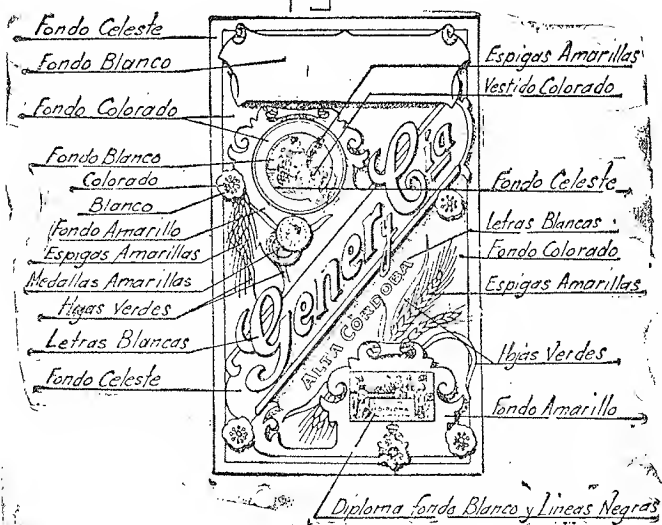 Fondo Celeste
Fondo Blanco
Fondo Colorado
Fondo Blanco
Colorado
Blanco
Fondo Amarillo
Espigas Amarillas
Medallas Amarillas
Hojas Verdes
Letras Blancas
Fondo Celeste
Gener y Cia
ALTA CÓRDOBA
Espigas Amarillas
Vestido Colorado
Fondo Celeste
Letras Blancas
Fondo Colorado
Espigas Amarillas
Hojas Verdes
Fondo Amarillo
Diploma Fondo Blanco y Lineas Negras